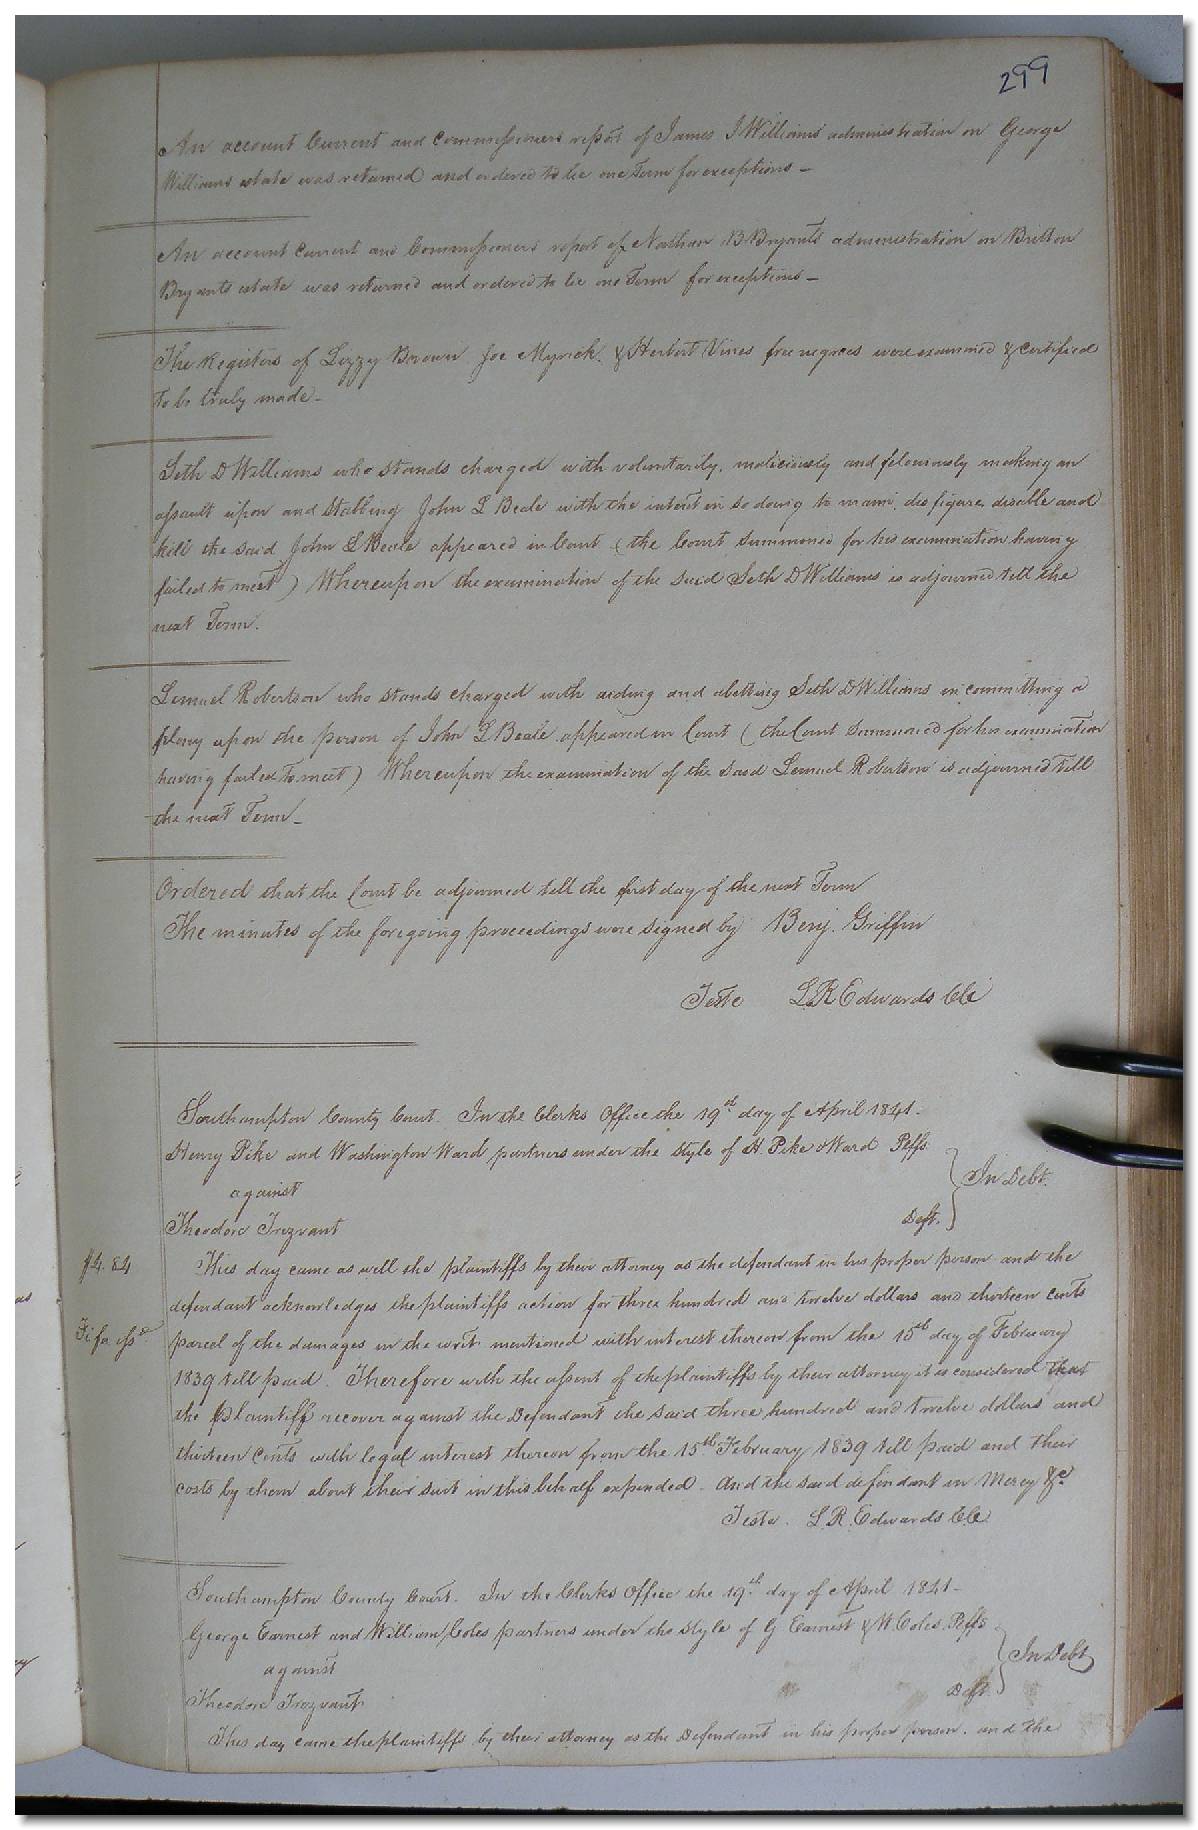 299
An account Current and commissioners report of James J Williams administration on George
Williams estate was returned and ordered to lie one Term for exceptions –
An account current and Commissioners report of Nathan B Bryants administration on Britton
Bryants estate was returned and ordered to lie one Term for exceptions –
The Registers of Lizzy Brown Joe Myrick & Herbert Vines free negroes were examined & certified
to be truly made –
Seth D Williams who stands charged with voluntarily, maliciously and feloniously making an
assault upon and stabbing John L Beale with the intent in so doing to maim, disfigure, disable and
kill the said John L Beale appeared in Court (the Court summoned for his examination having
failed to meet) Whereupon the examination of the said Seth D Williams is adjourned till the
next Term.
Lemuel Robertson who stands charged with aiding and abetting Seth D Williams in committing a
felony upon the person of John L Beale appeared in Court (the Court summoned for his examination
having failed to meet) Whereupon the examination of the said Lemuel Robertson is adjourned till
the next Term –
Ordered that the Court be adjourned till the first day of the next Term
The minutes of the foregoing proceedings were signed by Benj. Griffin
Teste L R Edwards Clk
Southampton County Court. In the Clerks Office the 19th day of April 1841 –
Henry Pike and Washington Ward partners under the style of H. Pike & Ward Plffs
In Debt.
against
Theodore Trezvant Deft.
This day came as well the plaintiffs by their attorney as the defendant in his proper person and the
$4.84
defendant acknowledges the plaintiffs action for three hundred and twelve dollars and thirteen cents
Fi fa issd
parcel of the damages in the writ mentioned with interest thereon from the 15th day of February
1839 till paid. Therefore with the assent of the plaintiffs by their attorney it is considered that
the plaintiff recover against the Defendant the said three hundred and twelve dollars and
thirteen Cents with legal interest thereon from the 15th February 1839 till paid and their
costs by them about their suit in this behalf expended. And the said defendant in Mercy &c
Teste. L. R. Edwards Clk
Southampton County Court. In the Clerks Office the 19th day of April 1841 –
George Earnest and William Coles partners under the style of G Earnest & W. Coles Plffs
In Debt
against
Theodore Trezvant Deft
This day came the plaintiffs by their attorney as the Defendant in his proper person. and the